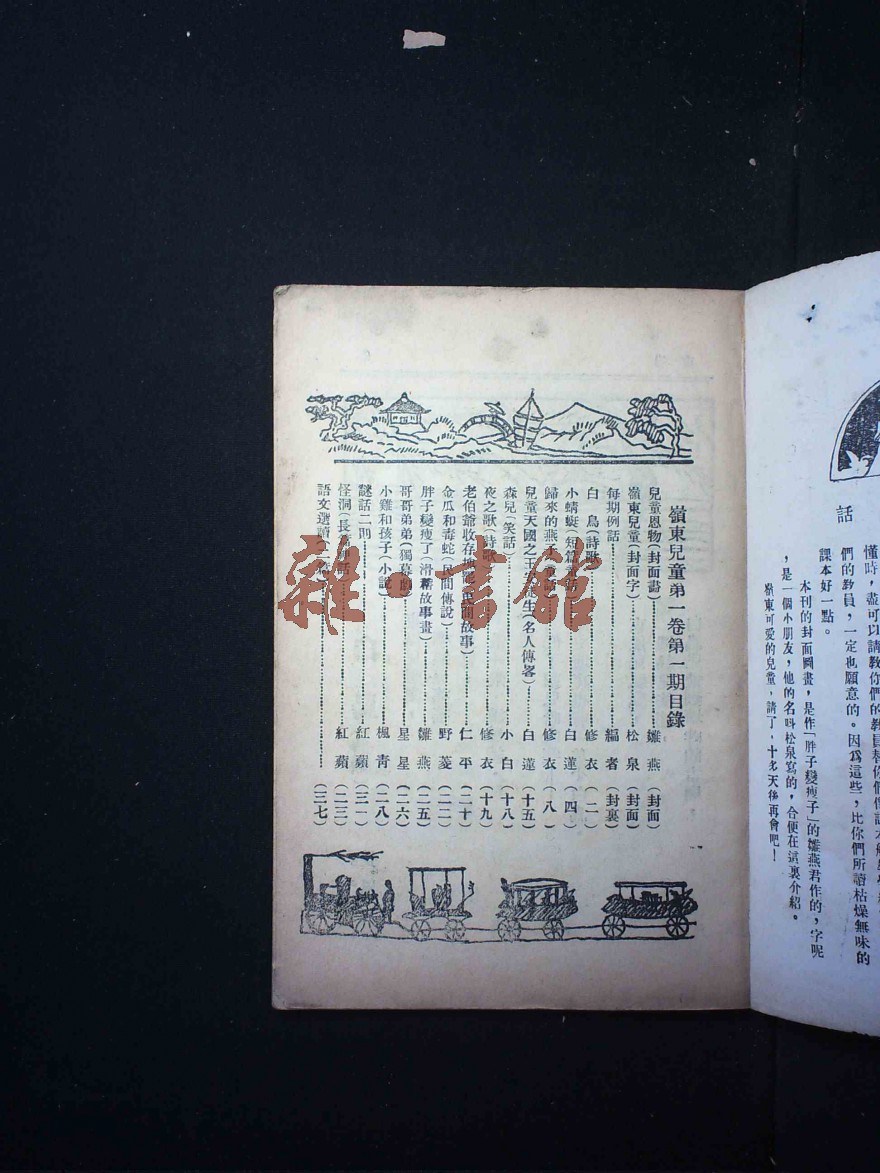 嶺東兒童第一卷第一期目錄
兒童恩物(封面畫)…………雛燕(封面)
嶺東兒童(封面字)…………松泉(封面)
每期例話…………編者(封裏)
白鳥(詩歌)…………修衣(二)
小蜻蜓(短篇…………白蓮(四)
歸來的燕子…………修衣(八)
兒童天國之王…生(名人傳畧)…………白蓮(十五)
森兒(笑話)…………小白(十八)
夜之歌(詩歌)…………修衣(十九)
老伯爺收存…(民間故事)…………仁平(二十)
金瓜和毒蛇(民間傳說)…………野菱(二二)
胖子變瘦了(滑稽故事畫)…………雛燕(二五)
哥哥弟弟(獨幕劇)…………星星(二六)
小雞和孩子(小說)…………楓青(二八)
謎話二則…………紅蘋(三一)
怪洞(長篇…話)…………紅蘋(三三)
語文選讀(二…………(三七)
雜·書館
話
懂時,盡可以請教你們的
們的教員,一定也願意的。因爲這些,比你們所讀枯燥無味的
課本好一點。
本刊的封面圖畫,是作「胖子變瘦子」的雛燕君作的,字呢
,是一個小朋友,他的名叫松泉寫的,合便在這裏介紹。
嶺東可愛的兒童,請了,十多天後再會吧!